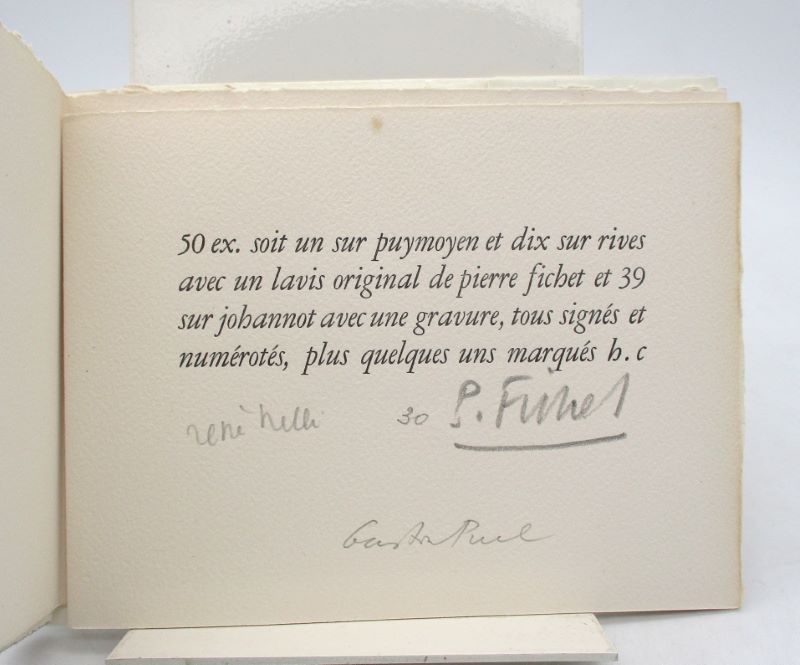 50 ex. soit un sur puymoyen et dix sur rives
avec un lavis original de pierre fichet et 39
sur johannot avec une gravure, tous signés et
numérotés, plus quelques uns marqués h.c
rené nelli 30 P. Fichet
Gaston Puel